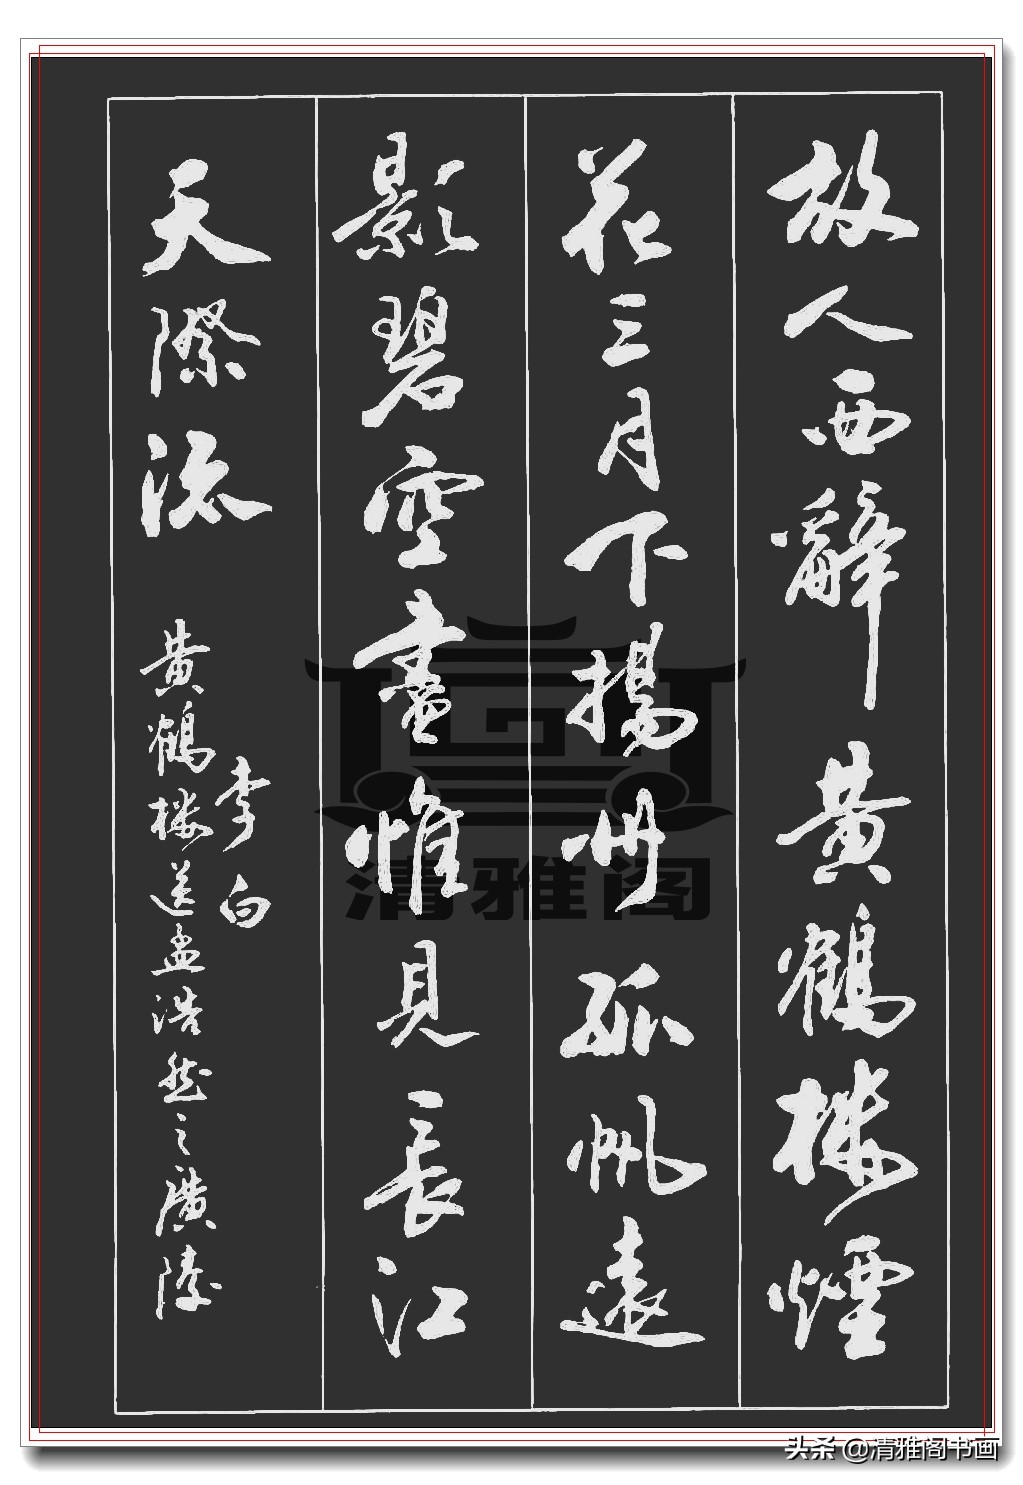 故人西辭黃鶴樓煙
花三月下揚州孤帆遠
影碧空盡惟見長江
天際流
李白
黃鶴樓送孟浩然之廣陵
清雅阁
头条 @清雅阁书画